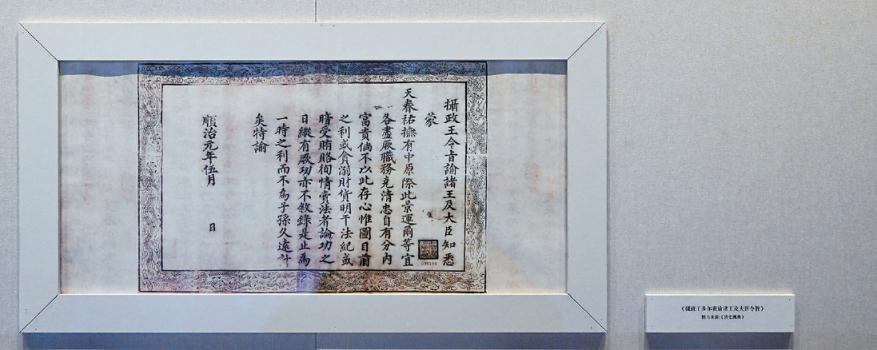 攝政王令旨諭諸王及大臣知悉
蒙
天眷祐撫有中原際此景運爾等宜
各盡厥職務克清忠自有分内
富貴倘不以此存心惟圖目前
之利或貪溺財貨明干法紀或
暗受賄賂徇情賣法者論功之
日縱有厥功亦不敘錄是止為
一時之利而不為子孫久遠計
矣特諭
順治元年伍月
日
《攝政王多尔衮諭诸王及大臣令旨》